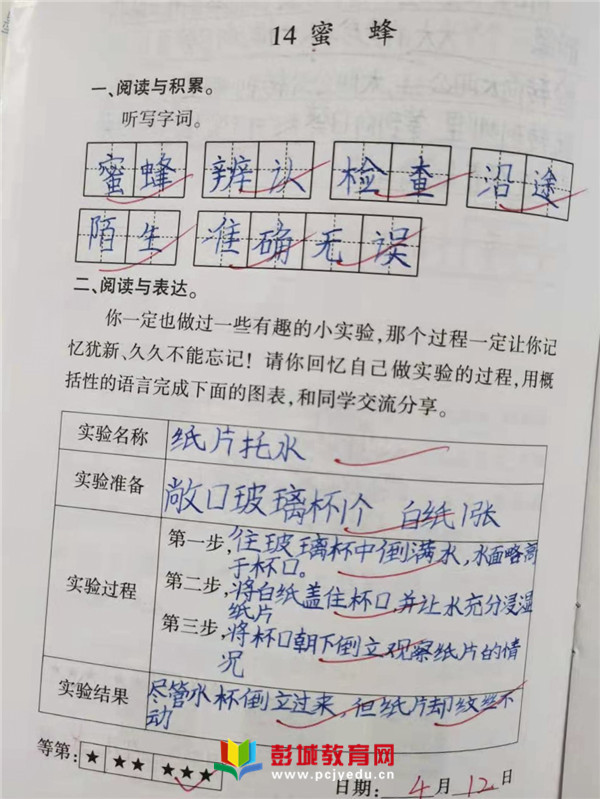 14 蜜 蜂
一、阅读与积累。
听写字词。
蜜蜂 辨认 检查 沿途
陌生 准确无误
二、阅读与表达。
你一定也做过一些有趣的小实验,那个过程一定让你记
忆犹新、久久不能忘记!请你回忆自己做实验的过程,用概
括性的语言完成下面的图表,和同学交流分享。
实验名称 纸片托水
实验准备 敞口玻璃杯1个 白纸1张
实验过程
第一步,往玻璃杯中倒满水,水面略高
于杯口。
第二步,将白纸盖住杯口,并让水充分浸湿
纸片
第三步,将杯口朝下倒立观察纸片的情
况
实验结果 尽管水杯倒立过来,但纸片却纹丝不
动
等第: ★ ★★ ★★★
彭城教育网
www.pcjyedu.cn
日期: 4月12日